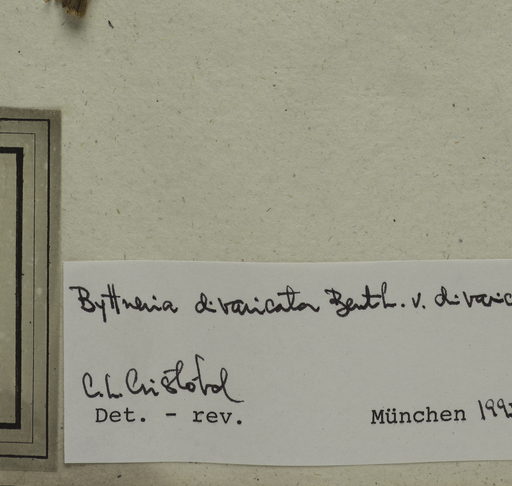 Byttneria divaricata Benth. v. divaric
C.L. Cristóbal
Det. - rev. München 199